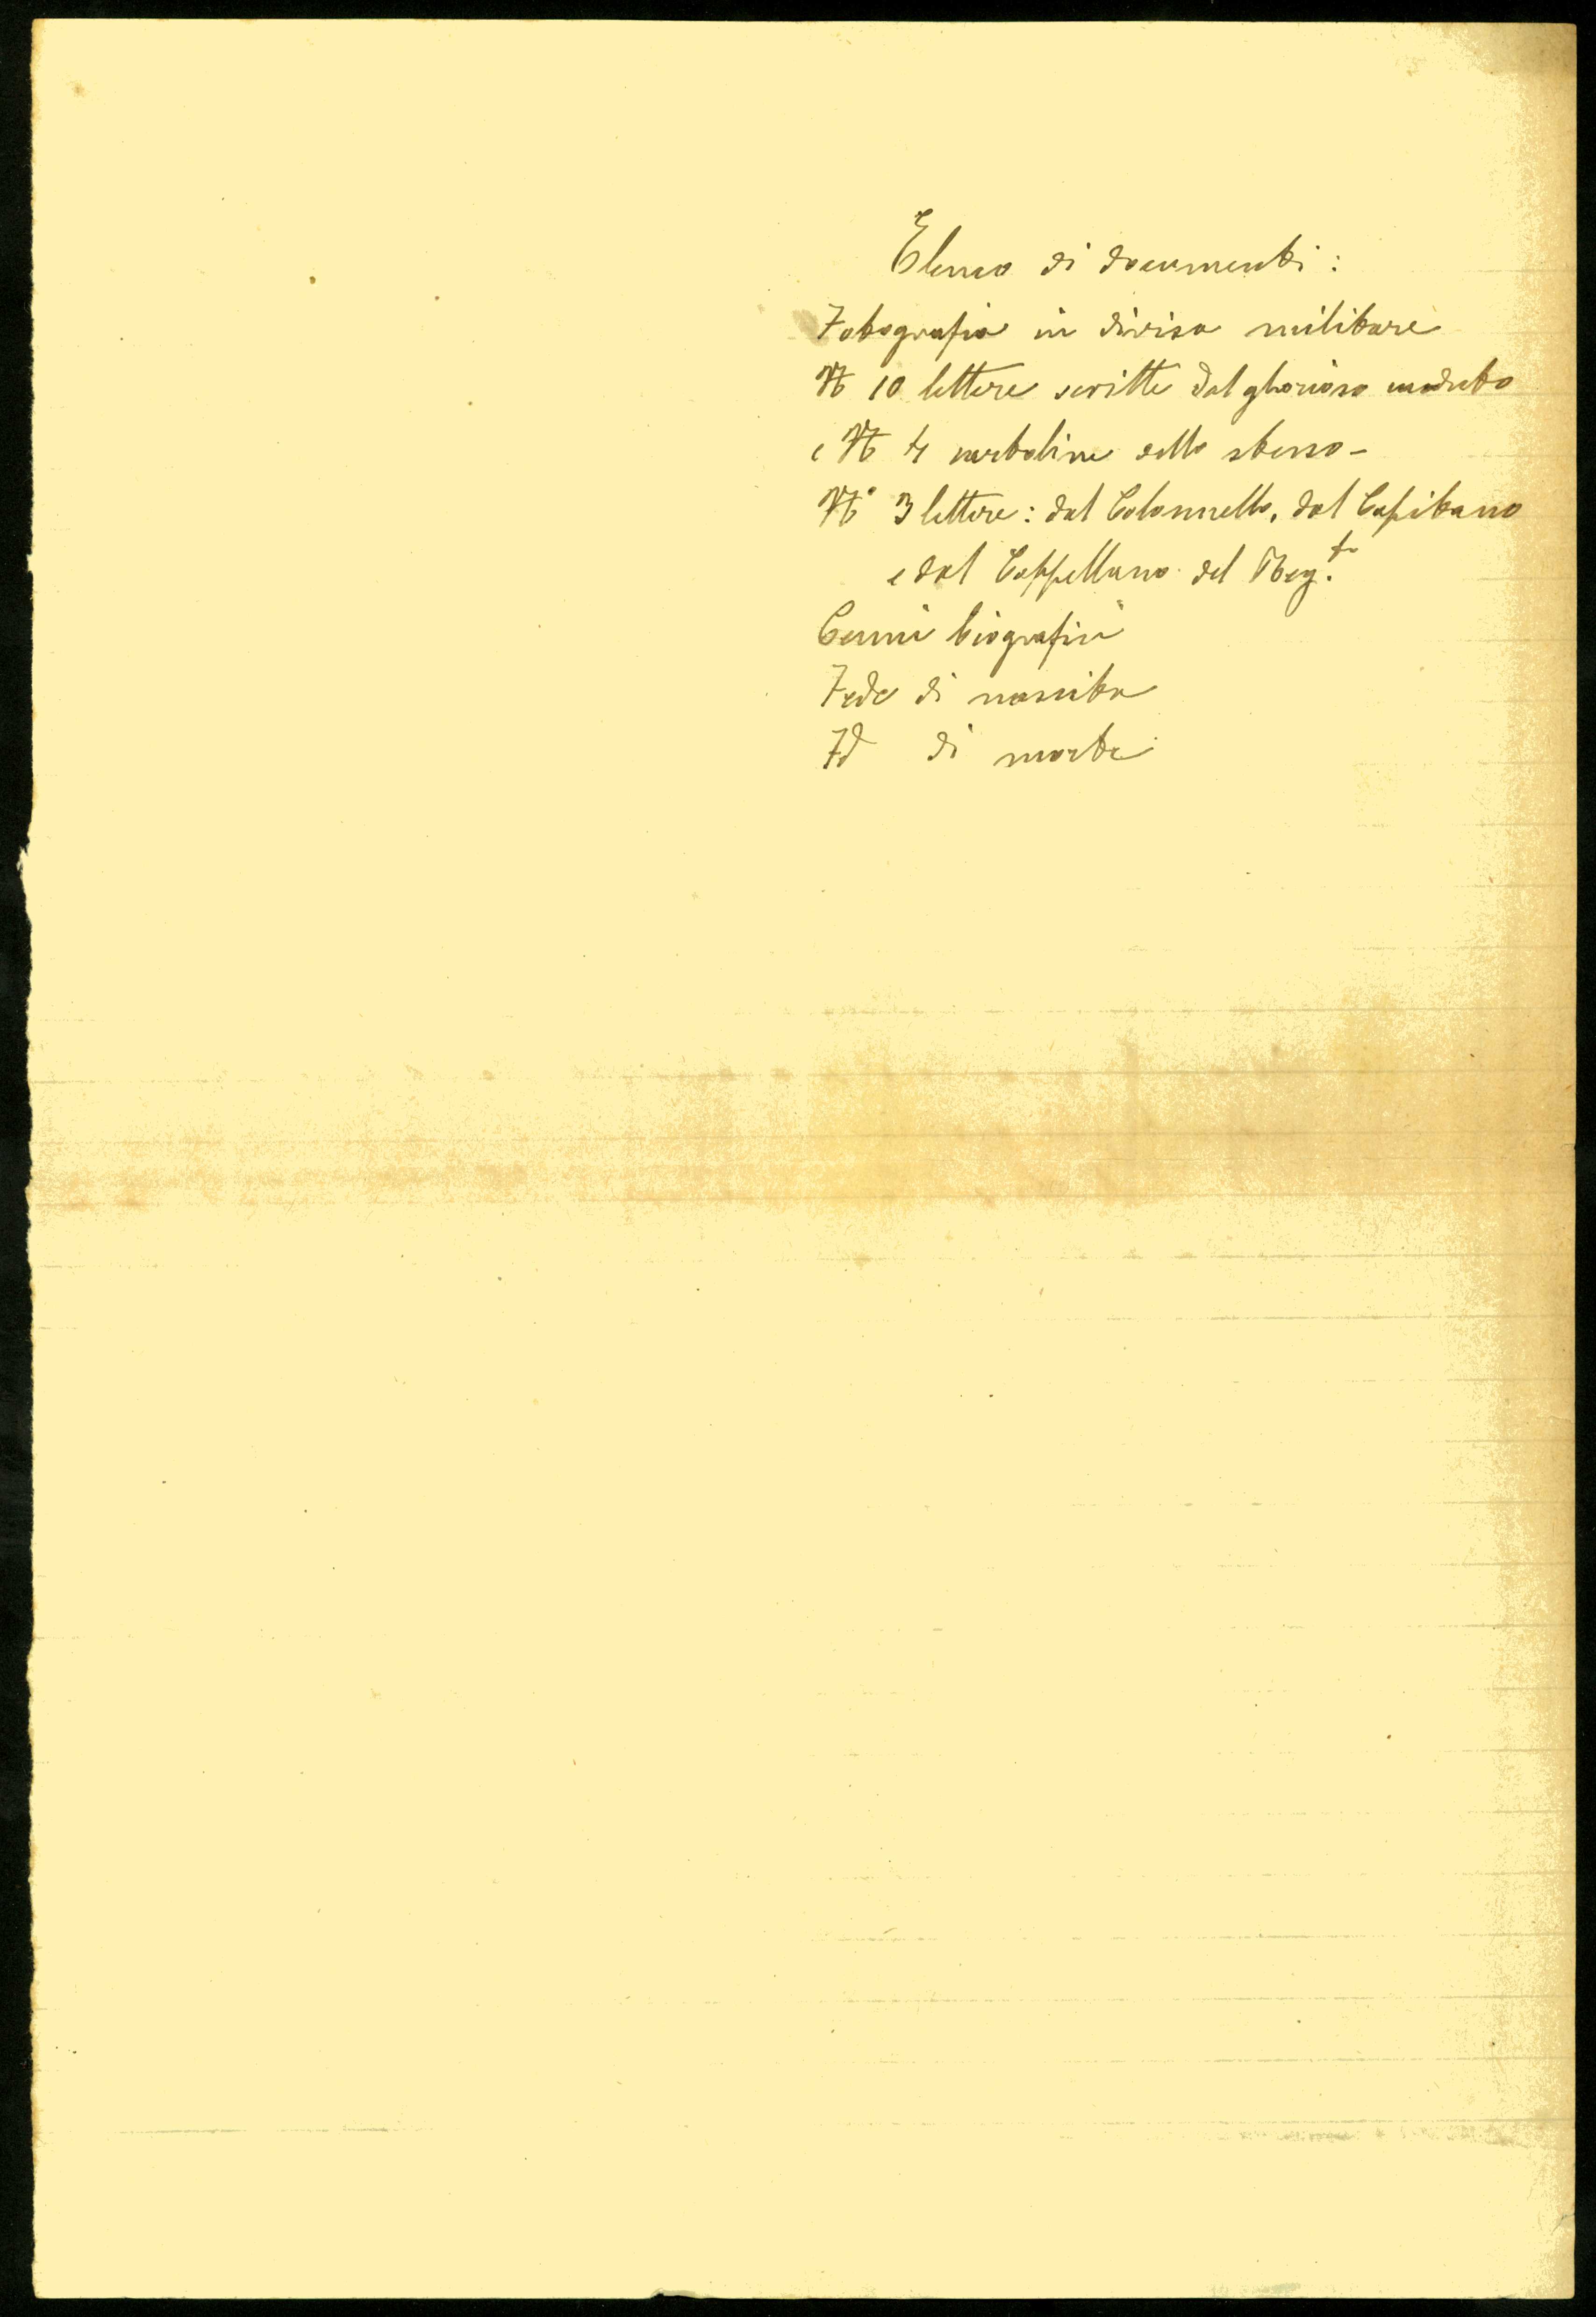 Elenco di documenti:
Fotografia in divisa militare
N 10 lettere scritte dal glorioso caduto
e N 4 cartoline dello stesso-
N° 3 lettere: dal Colonnello, dal Capitano
e dal Cappellano del Reg.to
Cenni biografici
Fede di nascita
Id di morte